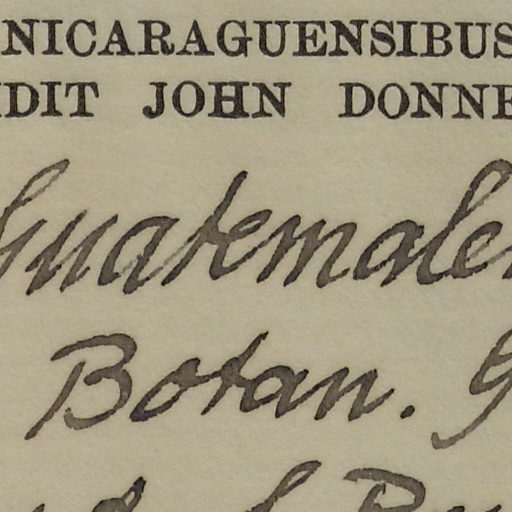 NICARAGUENSIBUS
DIT JOHN DONNE
Guatemale
Botan. G